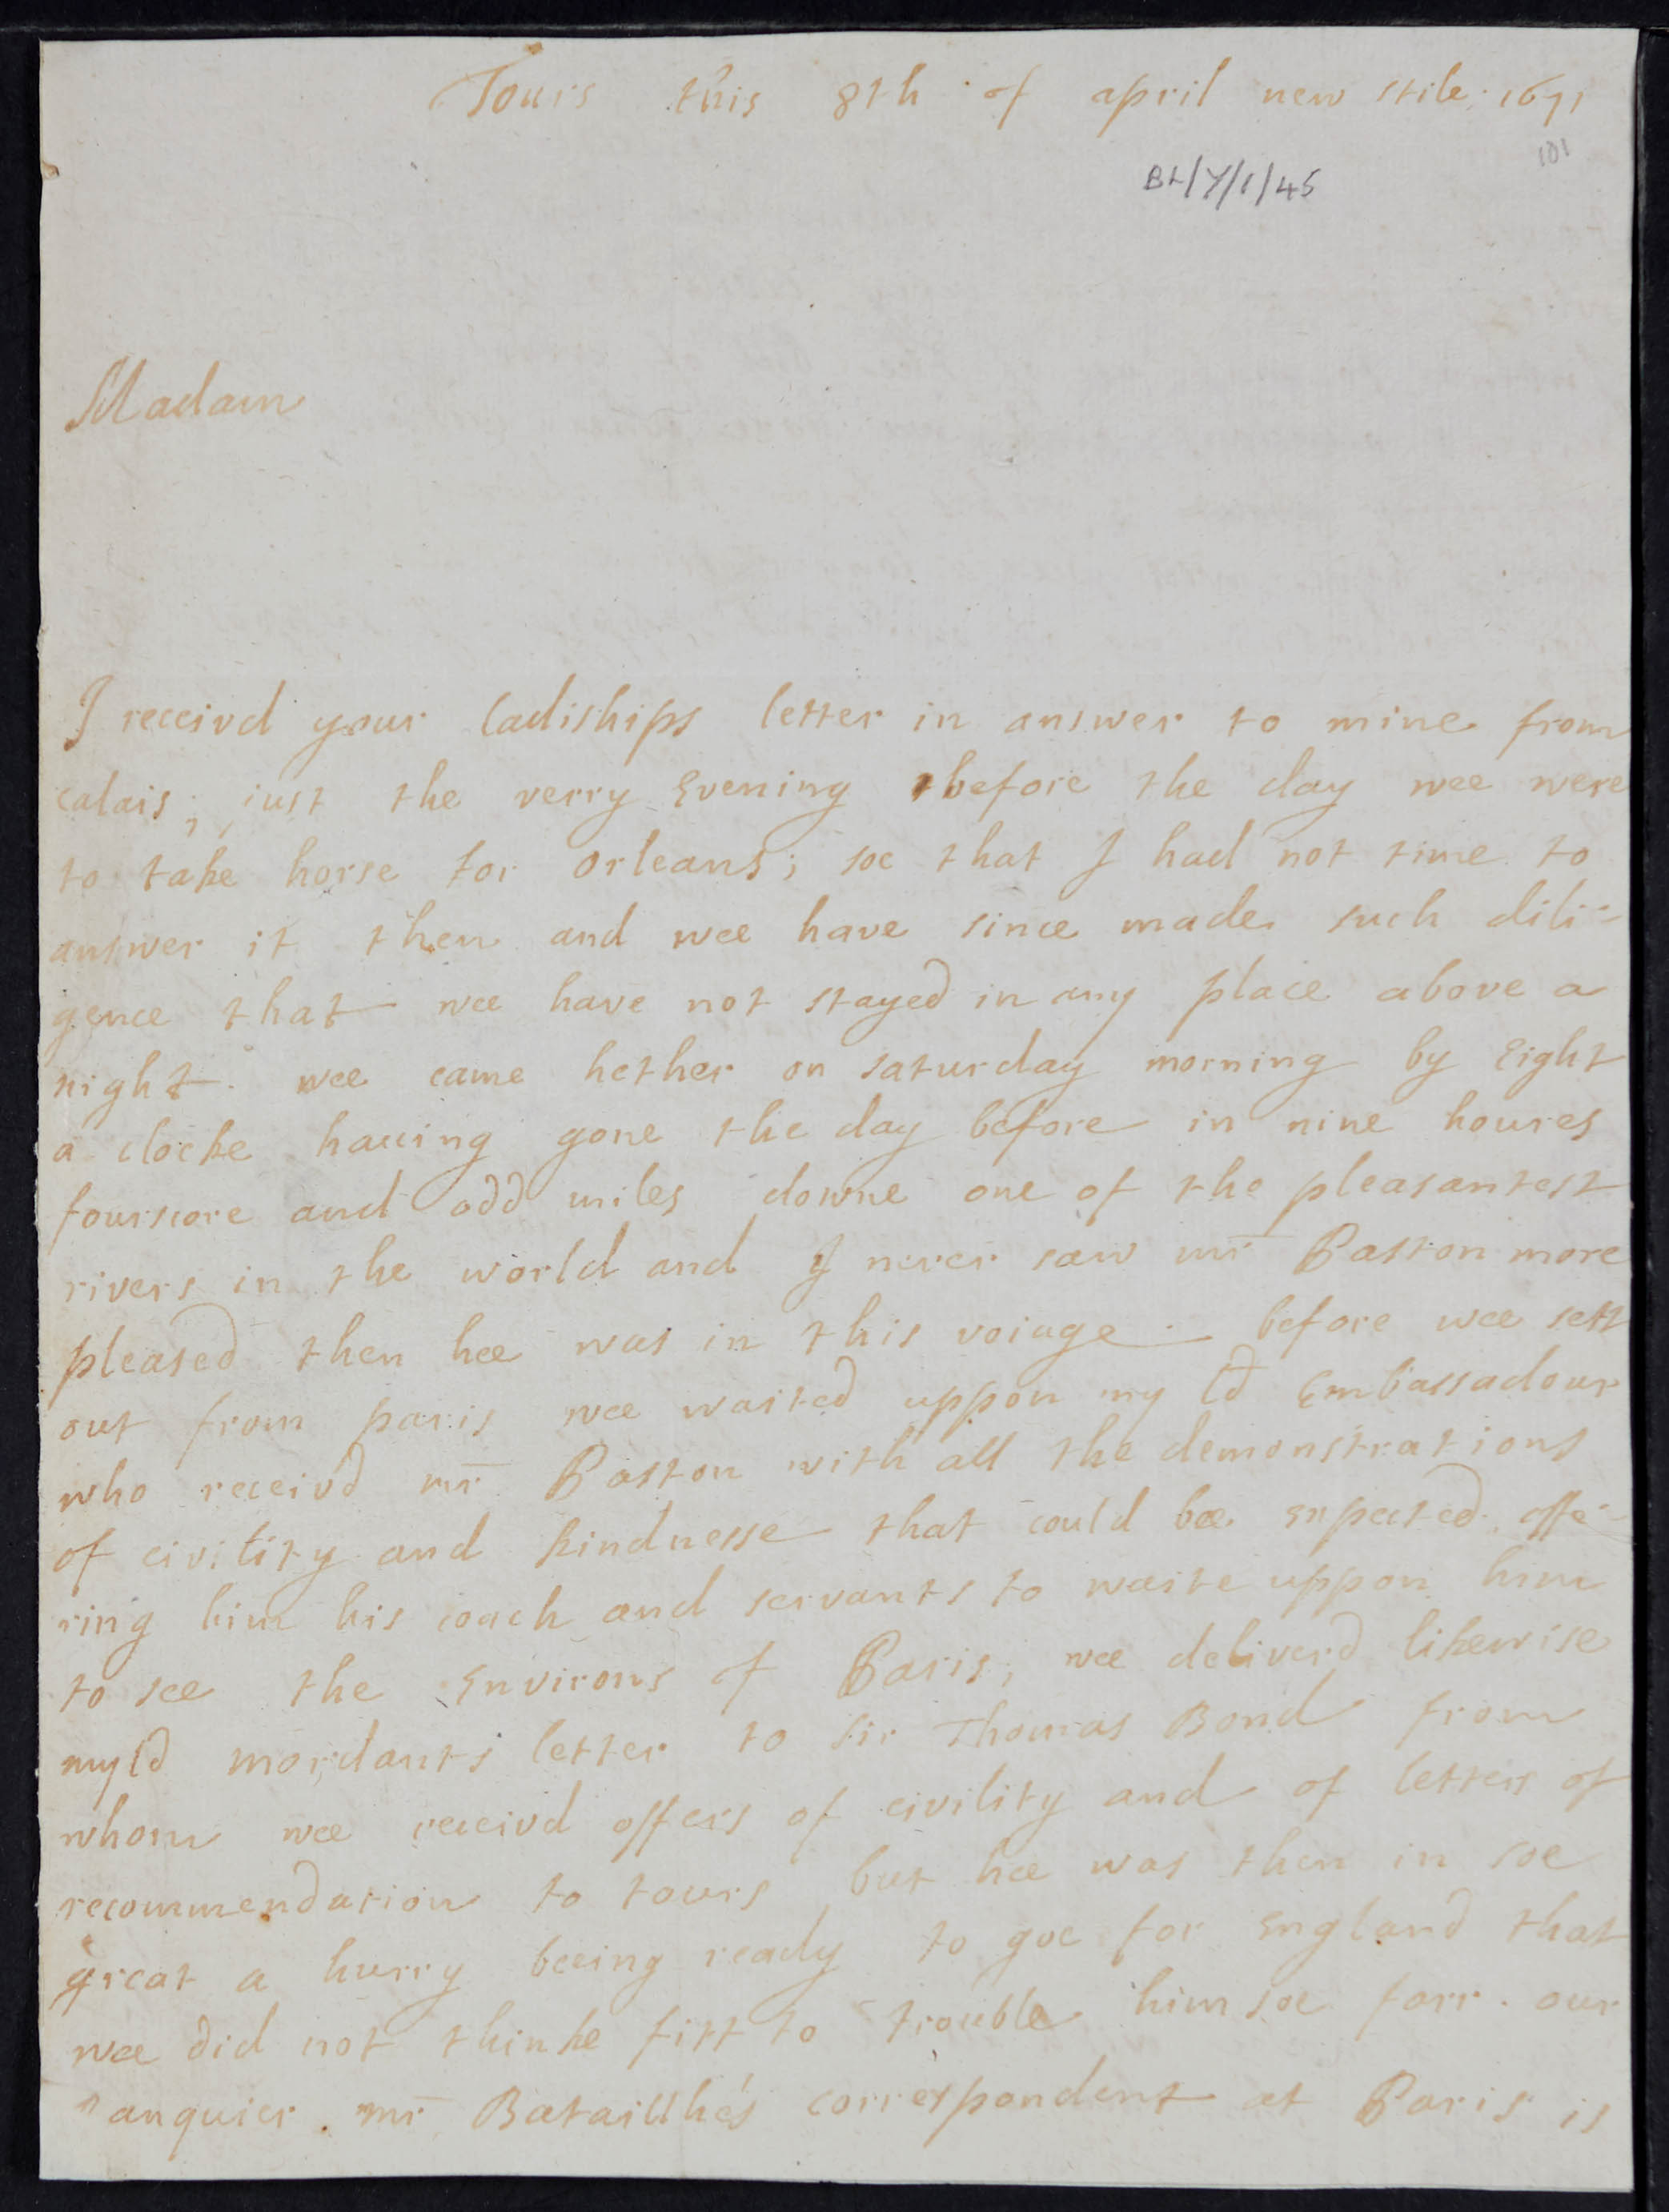 Tours this 8th of april new stile. 1671
101
BL/Y/1/45
Madam
I receivd your ladiships letter in answer to mine from
calais; just the verry Evening before the day wee were
to take horse for orleans; soe that I had not time to
answer it then and wee have since made such dili-
gence that wee have not stayed in any place above a
night. wee came hether on saturday morning by Eight
a clocke hauing gone the day before in nine houres
fourscore and odd miles downe one of the pleasantest
rivers in the world and I never saw mr Paston more
pleased then hee was in this voiage. before wee sett
out from paris wee waited uppon my Ld Embassadour
who receivd mr Paston with all the demonstrations
of civility and kindnesse that could bee Expected offe-
ring him his coach and servants to waite uppon him
to see the Environs of Paris; wee deliverd likewise
my ld mordants letter to Sir Thomas Bond from
whom wee receivd offers of civility and of letters of
recommendation to tours but hee was then in soe
great a hurry beeing ready to goe for England that
wee did not thinke fitt to trouble him soe farr. our
banquier. mr Bataillhés correspondent at Paris is